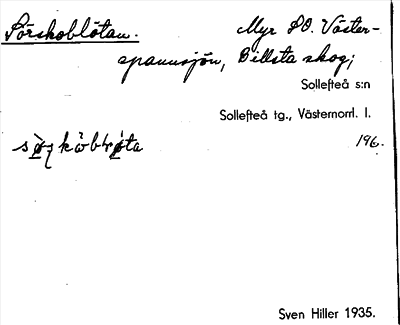 Sörskoblötan. Myr SO. Väster-
spannsjön, Billsta skog;
Sollefteå s:n
Sollefteå tg., Västernorrl. l.
196.
Sven Hiller 1935.